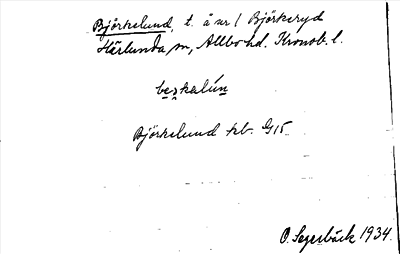 Björkelund, t. å nr 1 Björkeryd
Härlunda sn, Allbo hd. Kronob. l.
Björkelund kb. G15
O. Segerbäck 1934.